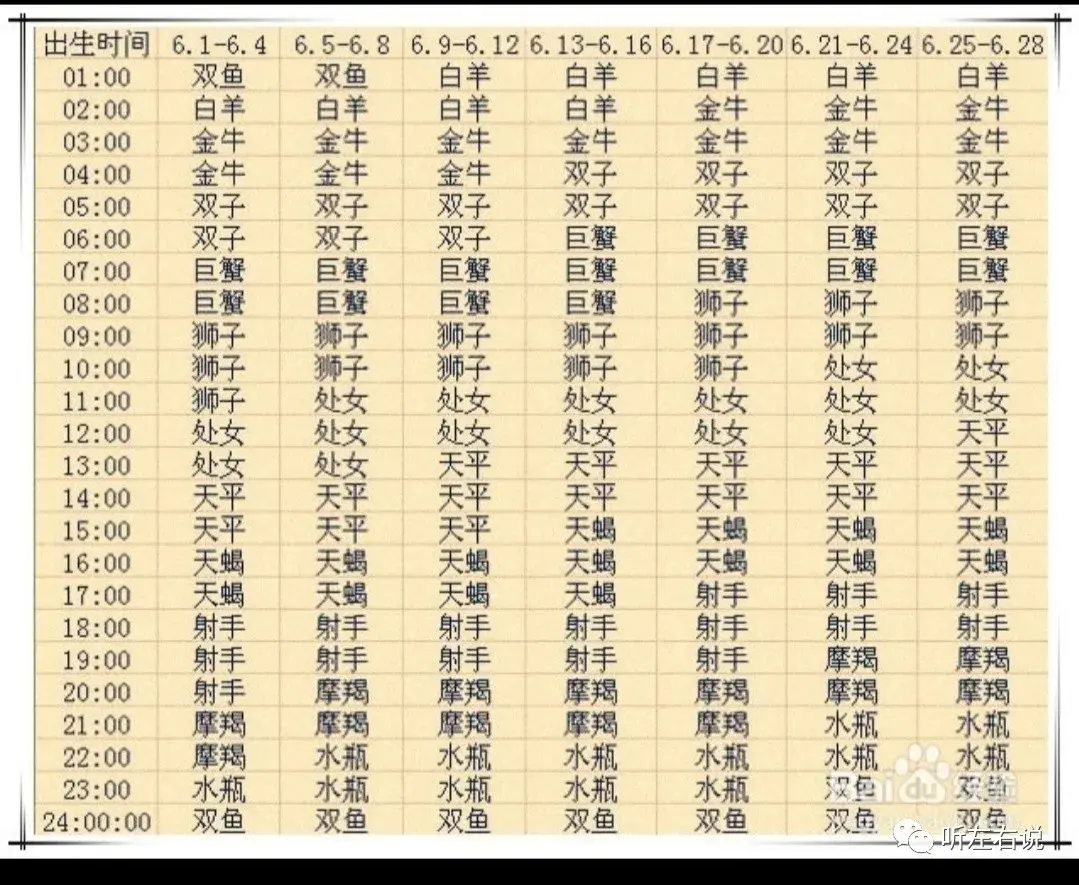 出生时间 6.1-6.4 6.5-6.8 6.9-6.12 6.13-6.16 6.17-6.20 6.21-6.24 6.25-6.28
01:00 双鱼 双鱼 白羊 白羊 白羊 白羊 白羊
02:00 白羊 白羊 白羊 白羊 金牛 金牛 金牛
03:00 金牛 金牛 金牛 金牛 金牛 金牛 金牛
04:00 金牛 金牛 金牛 双子 双子 双子 双子
05:00 双子 双子 双子 双子 双子 双子 双子
06:00 双子 双子 双子 巨蟹 巨蟹 巨蟹 巨蟹
07:00 巨蟹 巨蟹 巨蟹 巨蟹 巨蟹 巨蟹 巨蟹
08:00 巨蟹 巨蟹 巨蟹 巨蟹 狮子 狮子 狮子
09:00 狮子 狮子 狮子 狮子 狮子 狮子 狮子
10:00 狮子 狮子 狮子 狮子 狮子 处女 处女
11:00 狮子 处女 处女 处女 处女 处女 处女
12:00 处女 处女 处女 处女 处女 处女 天平
13:00 处女 处女 天平 天平 天平 天平 天平
14:00 天平 天平 天平 天平 天平 天平 天平
15:00 天平 天平 天平 天蝎 天蝎 天蝎 天蝎
16:00 天蝎 天蝎 天蝎 天蝎 天蝎 天蝎 天蝎
17:00 天蝎 天蝎 天蝎 天蝎 射手 射手 射手
18:00 射手 射手 射手 射手 射手 射手 射手
19:00 射手 射手 射手 射手 射手 摩羯 摩羯
20:00 射手 摩羯 摩羯 摩羯 摩羯 摩羯 摩羯
21:00 摩羯 摩羯 摩羯 摩羯 摩羯 水瓶 水瓶
22:00 摩羯 水瓶 水瓶 水瓶 水瓶 水瓶 水瓶
23:00 水瓶 水瓶 水瓶 水瓶 水瓶 双鱼 双鱼
Baidu 经验
24:00:00 双鱼 双鱼 双鱼 双鱼 双鱼 双鱼 双鱼
听左右说